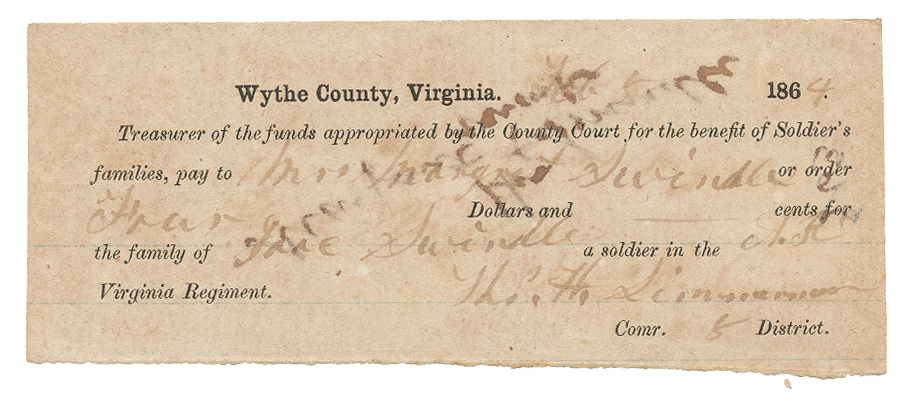 Wythe County, Virginia. Feb 5 1864.
Treasurer of the funds appropriated by the County Court for the benefit of Soldier's
families, pay to Mrs Margret Swindle or order
Four Dollars and cents for
the family of Swindle a soldier in the
Virginia Regiment. Thos. H. Zimmerman
Comr. 5 District.